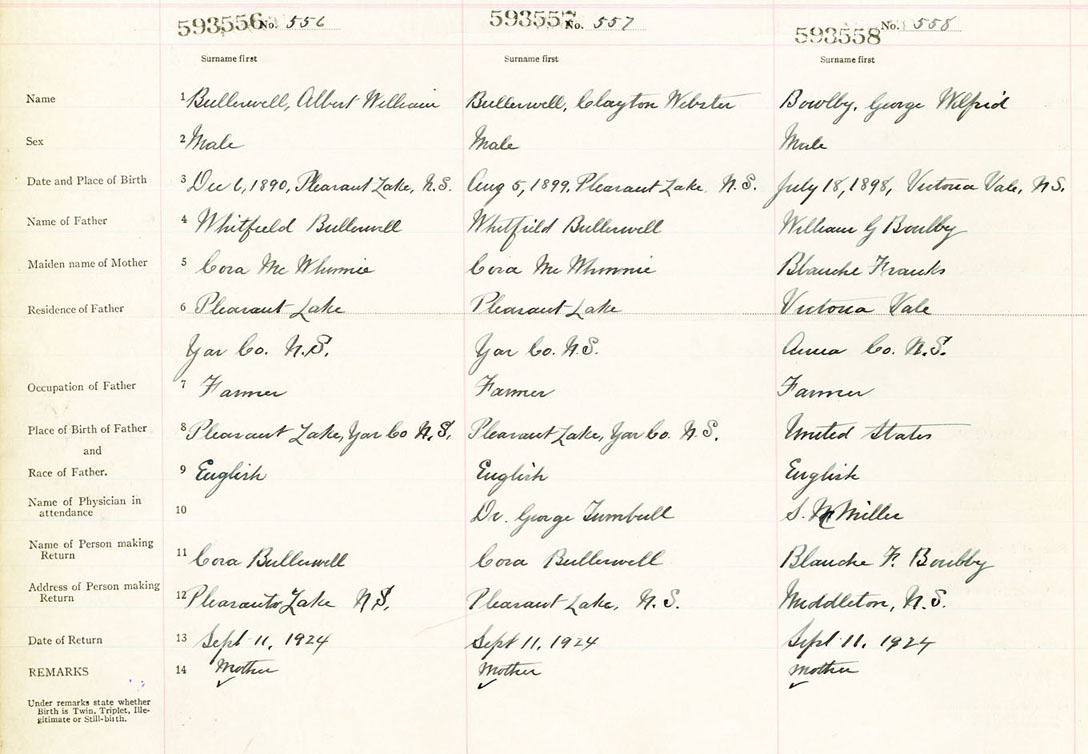 593556 No. 556 593557 No. 557 593558 No. 558
Surname first Surname first Surname first
Name 1 Bullerwell, Albert William Bullerwell, Clayton Webster Bowlby, George Wilfrid
Sex 2 Male Male Male
Date and Place of Birth 3 Dec 6, 1890, Pleasant Lake, N.S. Aug 5, 1899, Pleasant Lake N.S. July 18, 1898, Victoria Vale, N.S.
Name of Father 4 Whitfield Bullerwell Whitfield Bullerwell William G Bowlby
Maiden name of Mother 5 Cora Mc Whinnie Cora Mc Whinnie Blanche Franks
Residence of Father 6 Pleasant Lake Pleasant Lake Victoria Vale
Yar Co. N.S. Yar Co. N.S. Anna Co. N.S.
Occupation of Father 7 Farmer Farmer Farmer
Place of Birth of Father 8 Pleasant Lake, Yar Co N.S. Pleasant Lake, Yar Co. N.S. United States
and
Race of Father. 9 English English English
Name of Physician in
attendance 10 Dr. George Turnbull S. Miller
Name of Person making
Return 11 Cora Bullerwell Cora Bullerwell Blanche F. Bowlby
Address of Person making
Return 12 Pleasant Lake N.S. Pleasant Lake, N.S. Middleton, N.S.
Date of Return 13 Sept 11, 1924 Sept 11, 1924 Sept 11, 1924
REMARKS 14 Mother Mother Mother
Under remarks state whether
Birth is Twin, Triplet, Ille-
gitimate or Still-birth.